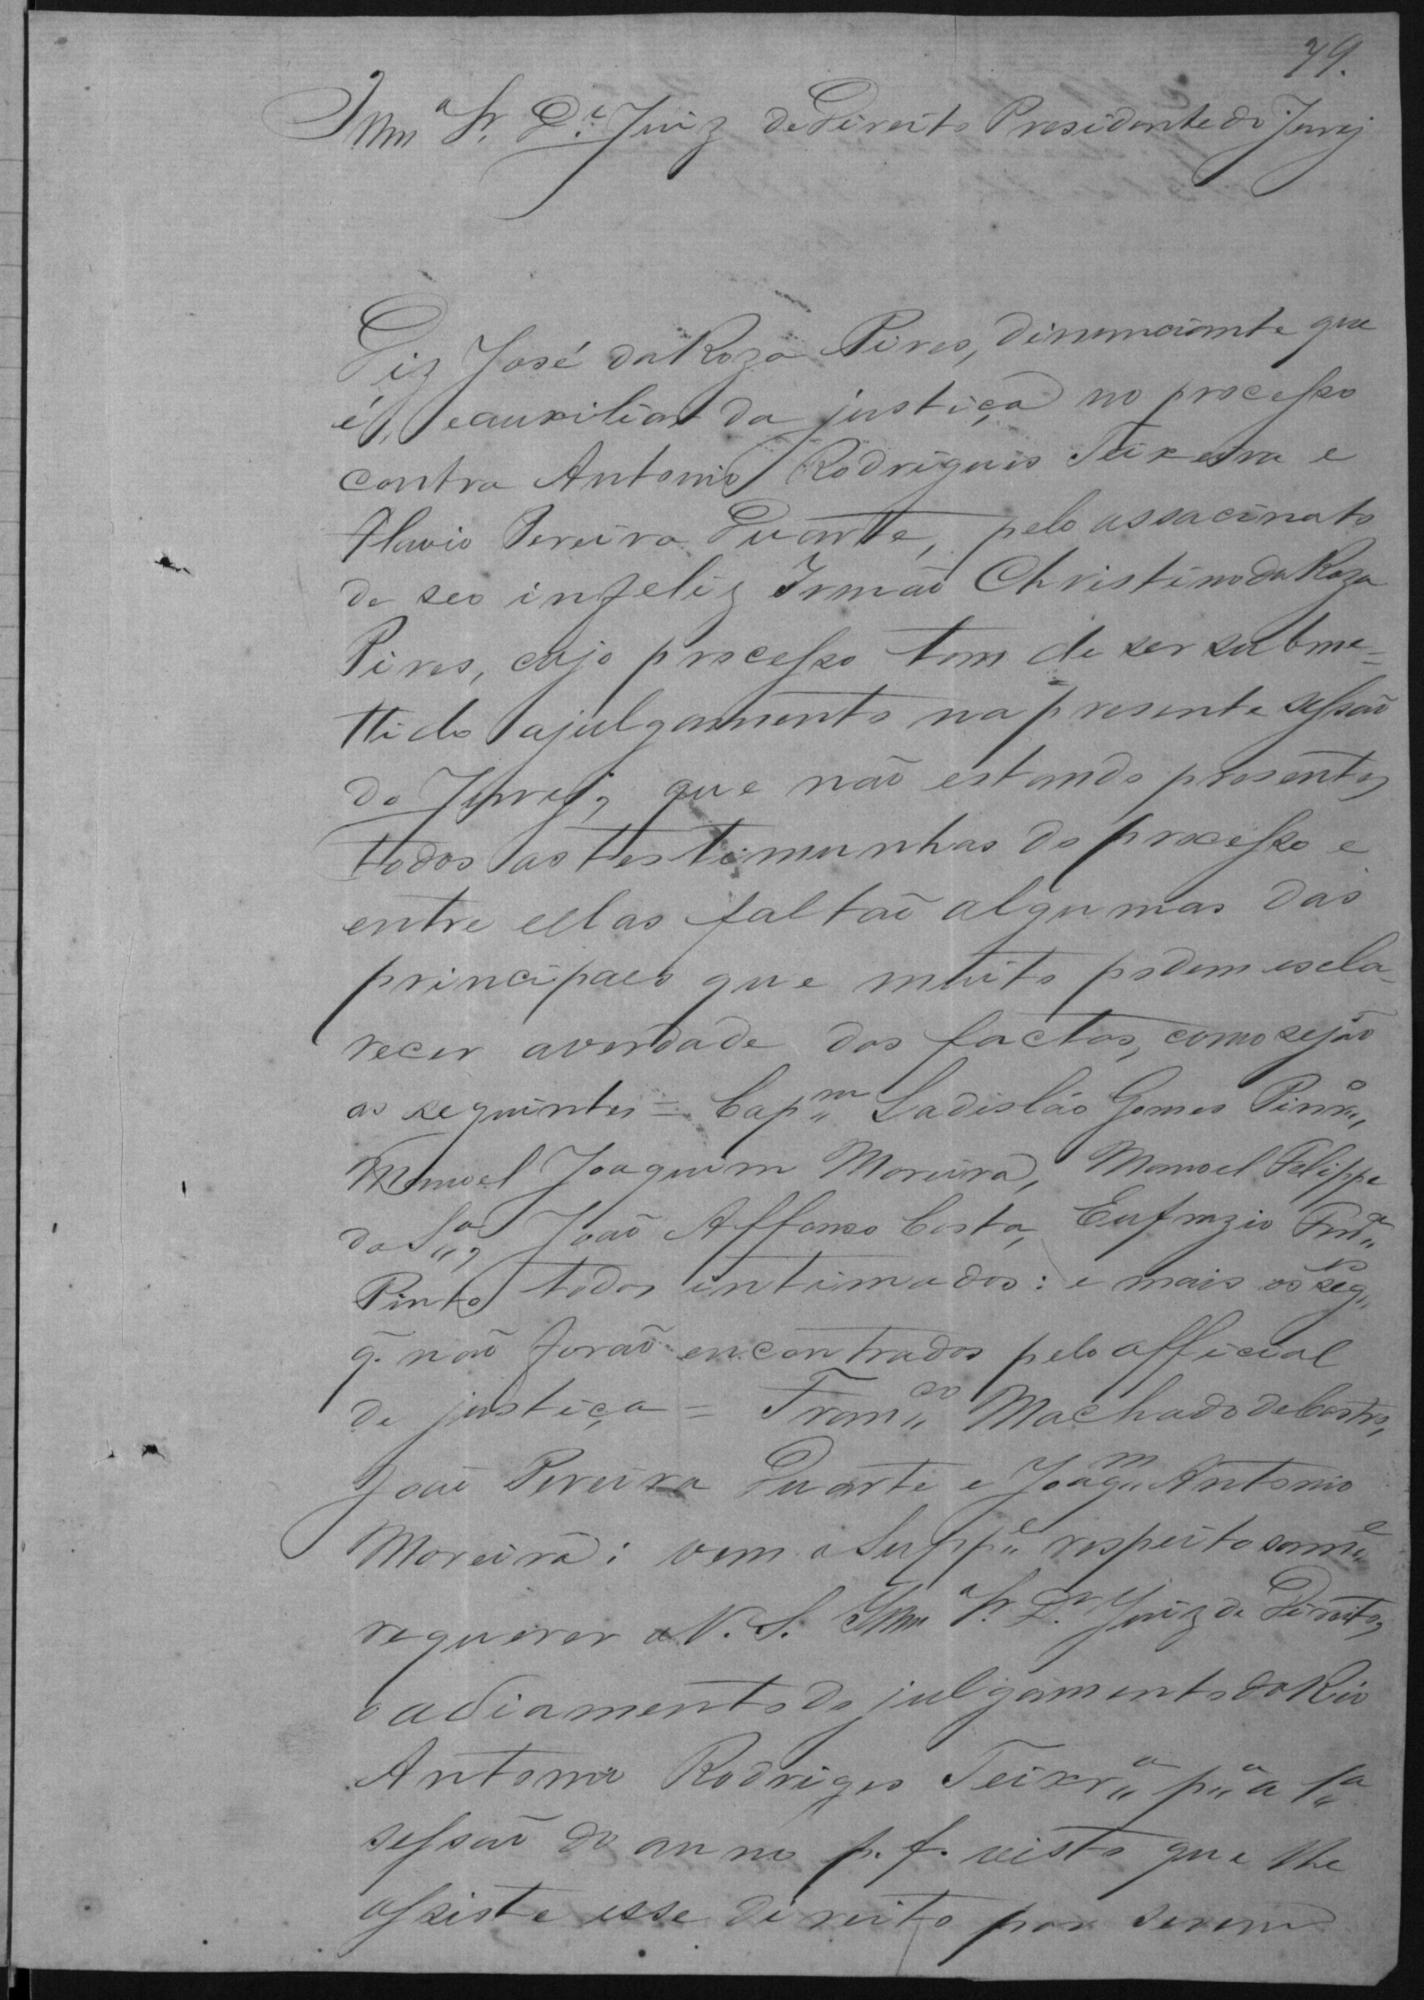 79.
Illmº Sr. Dr. Juiz de Direito Presidente do Jury
Diz José da Roza Pires, dinunciante que
é, e auxiliar da justiça no processo
contra Antonio Rodrigues Teixeira e
Flavio Pereira Duarte, pelo assacinato
de seo infeliz Irmão Christino da Roza
Pires, cujo processo tem de ser subme=
ttido a julgamento na presente sessão
do Jury, que não estando presentes
todos as testimunhas do processo e
entre ellas faltão algumas das
principaes que muito podem escla-
recer a verdade dos factos, como sejão
as seguintes = Capm Ladislão Gomes Pinrº,
Manoel Joaquim Moreira, Manoel Felippe
da Sª, João Affonso Costa, Eufrazio
Pinto todos intimados: e mais os segs
q. não forão encontrados pelo official
de justiça = Franco Machado de Castro,
João Pereira Duarte e Joaqm Antonio
Moreira: vem o Suppe respeitosame
requerer a V. S. Illmº Sr. Dr. Juiz de Direito,
o adiamento do julgamento do Réo
Antonio Rodriges Teixrª pª a 1ª
sessão do anno p. f. visto que lhe
assiste esse direito por serem